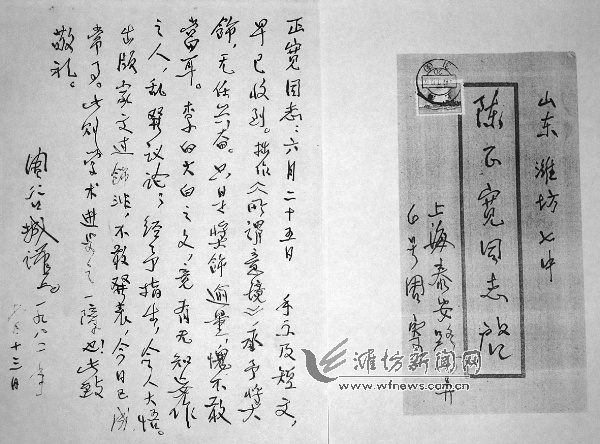 正宽同志：六月二十五日　手示及短文，
早已收到。拙作《所谓意境》承予奖
饰，无任兴奋。只是奖饰逾量，愧不敢
当耳。李白大白之文，竟有无知妄作
之人，乱发议论，经予指出，令人大悟。
出版家文过饰非，不敢发表，今日已成
常事。此则学术进步之一障也！此致
敬礼。
周谷城谨上。一九八二年
十三日
山东潍坊七中
陈正宽同志启
上海泰安路
6号周寓
潍坊新闻网
www.wfnews.com.cn